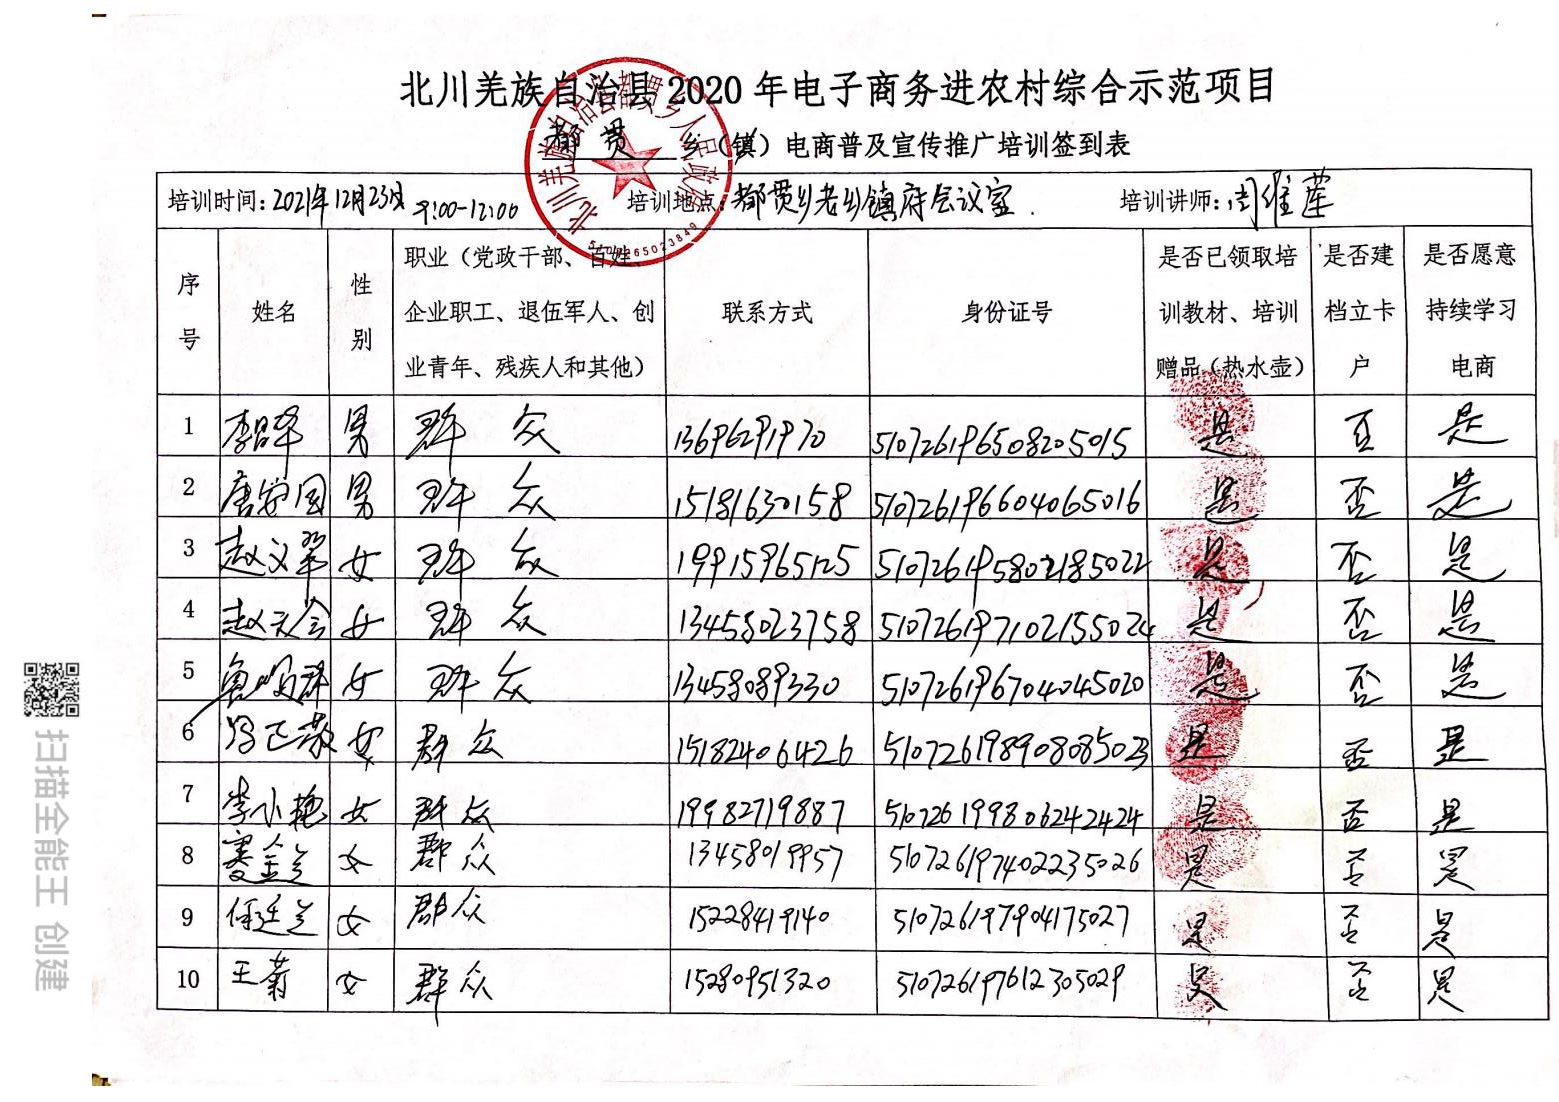 北川羌族自治县2020年电子商务进农村综合示范项目
都贯 乡（镇）电商普及宣传推广培训签到表
培训时间：2021年12月23日 9:00-12:00 培训地点：都贯乡老乡镇府会议室. 培训讲师：
序号 姓名 性别 职业（党政干部、百姓、企业职工、退伍军人、创业青年、残疾人和其他） 联系方式 身份证号 是否已领取培训教材、培训赠品（热水壶） 是否建档立卡户 是否愿意持续学习电商
1 男 群众 13696291970 510726196508205015 是 否 是
2 唐安国 男 群众 15181630158 510726196604065016 是 否 是
3 赵文翠 女 群众 19915965125 510726195802185022 是 否 是
4 赵天会 女 群众 13458023758 510726197102155024 是 否 是
5 女 群众 13458089330 510726196704045020 是 否 是
6 女 群众 15182406426 510726198908085023 是 否 是
7 李小艳 女 群众 19982719887 510726199806242424 是 否 是
8 女 群众 13458019957 510726197402235026 是 否 是
9 何廷兰 女 群众 15228419140 510726197904175027 是 否 是
10 王菊 女 群众 15280951320 510726197612305029 是 否 是
北川羌族自治县都贯乡人民政府
扫描全能王 创建